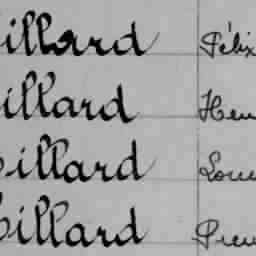 illard Félix
illard Hen
illard Loui
illard Pier